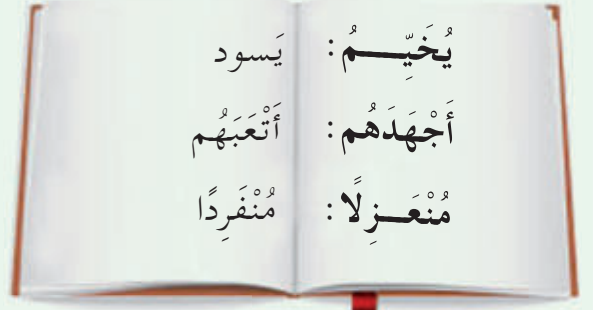 يُخَيِّـــمُ: يَسود
أَجْهَدَهُم: أَتْعَبَهُم
مُنْعَـــزِلًا: مُنْفَرِدًا